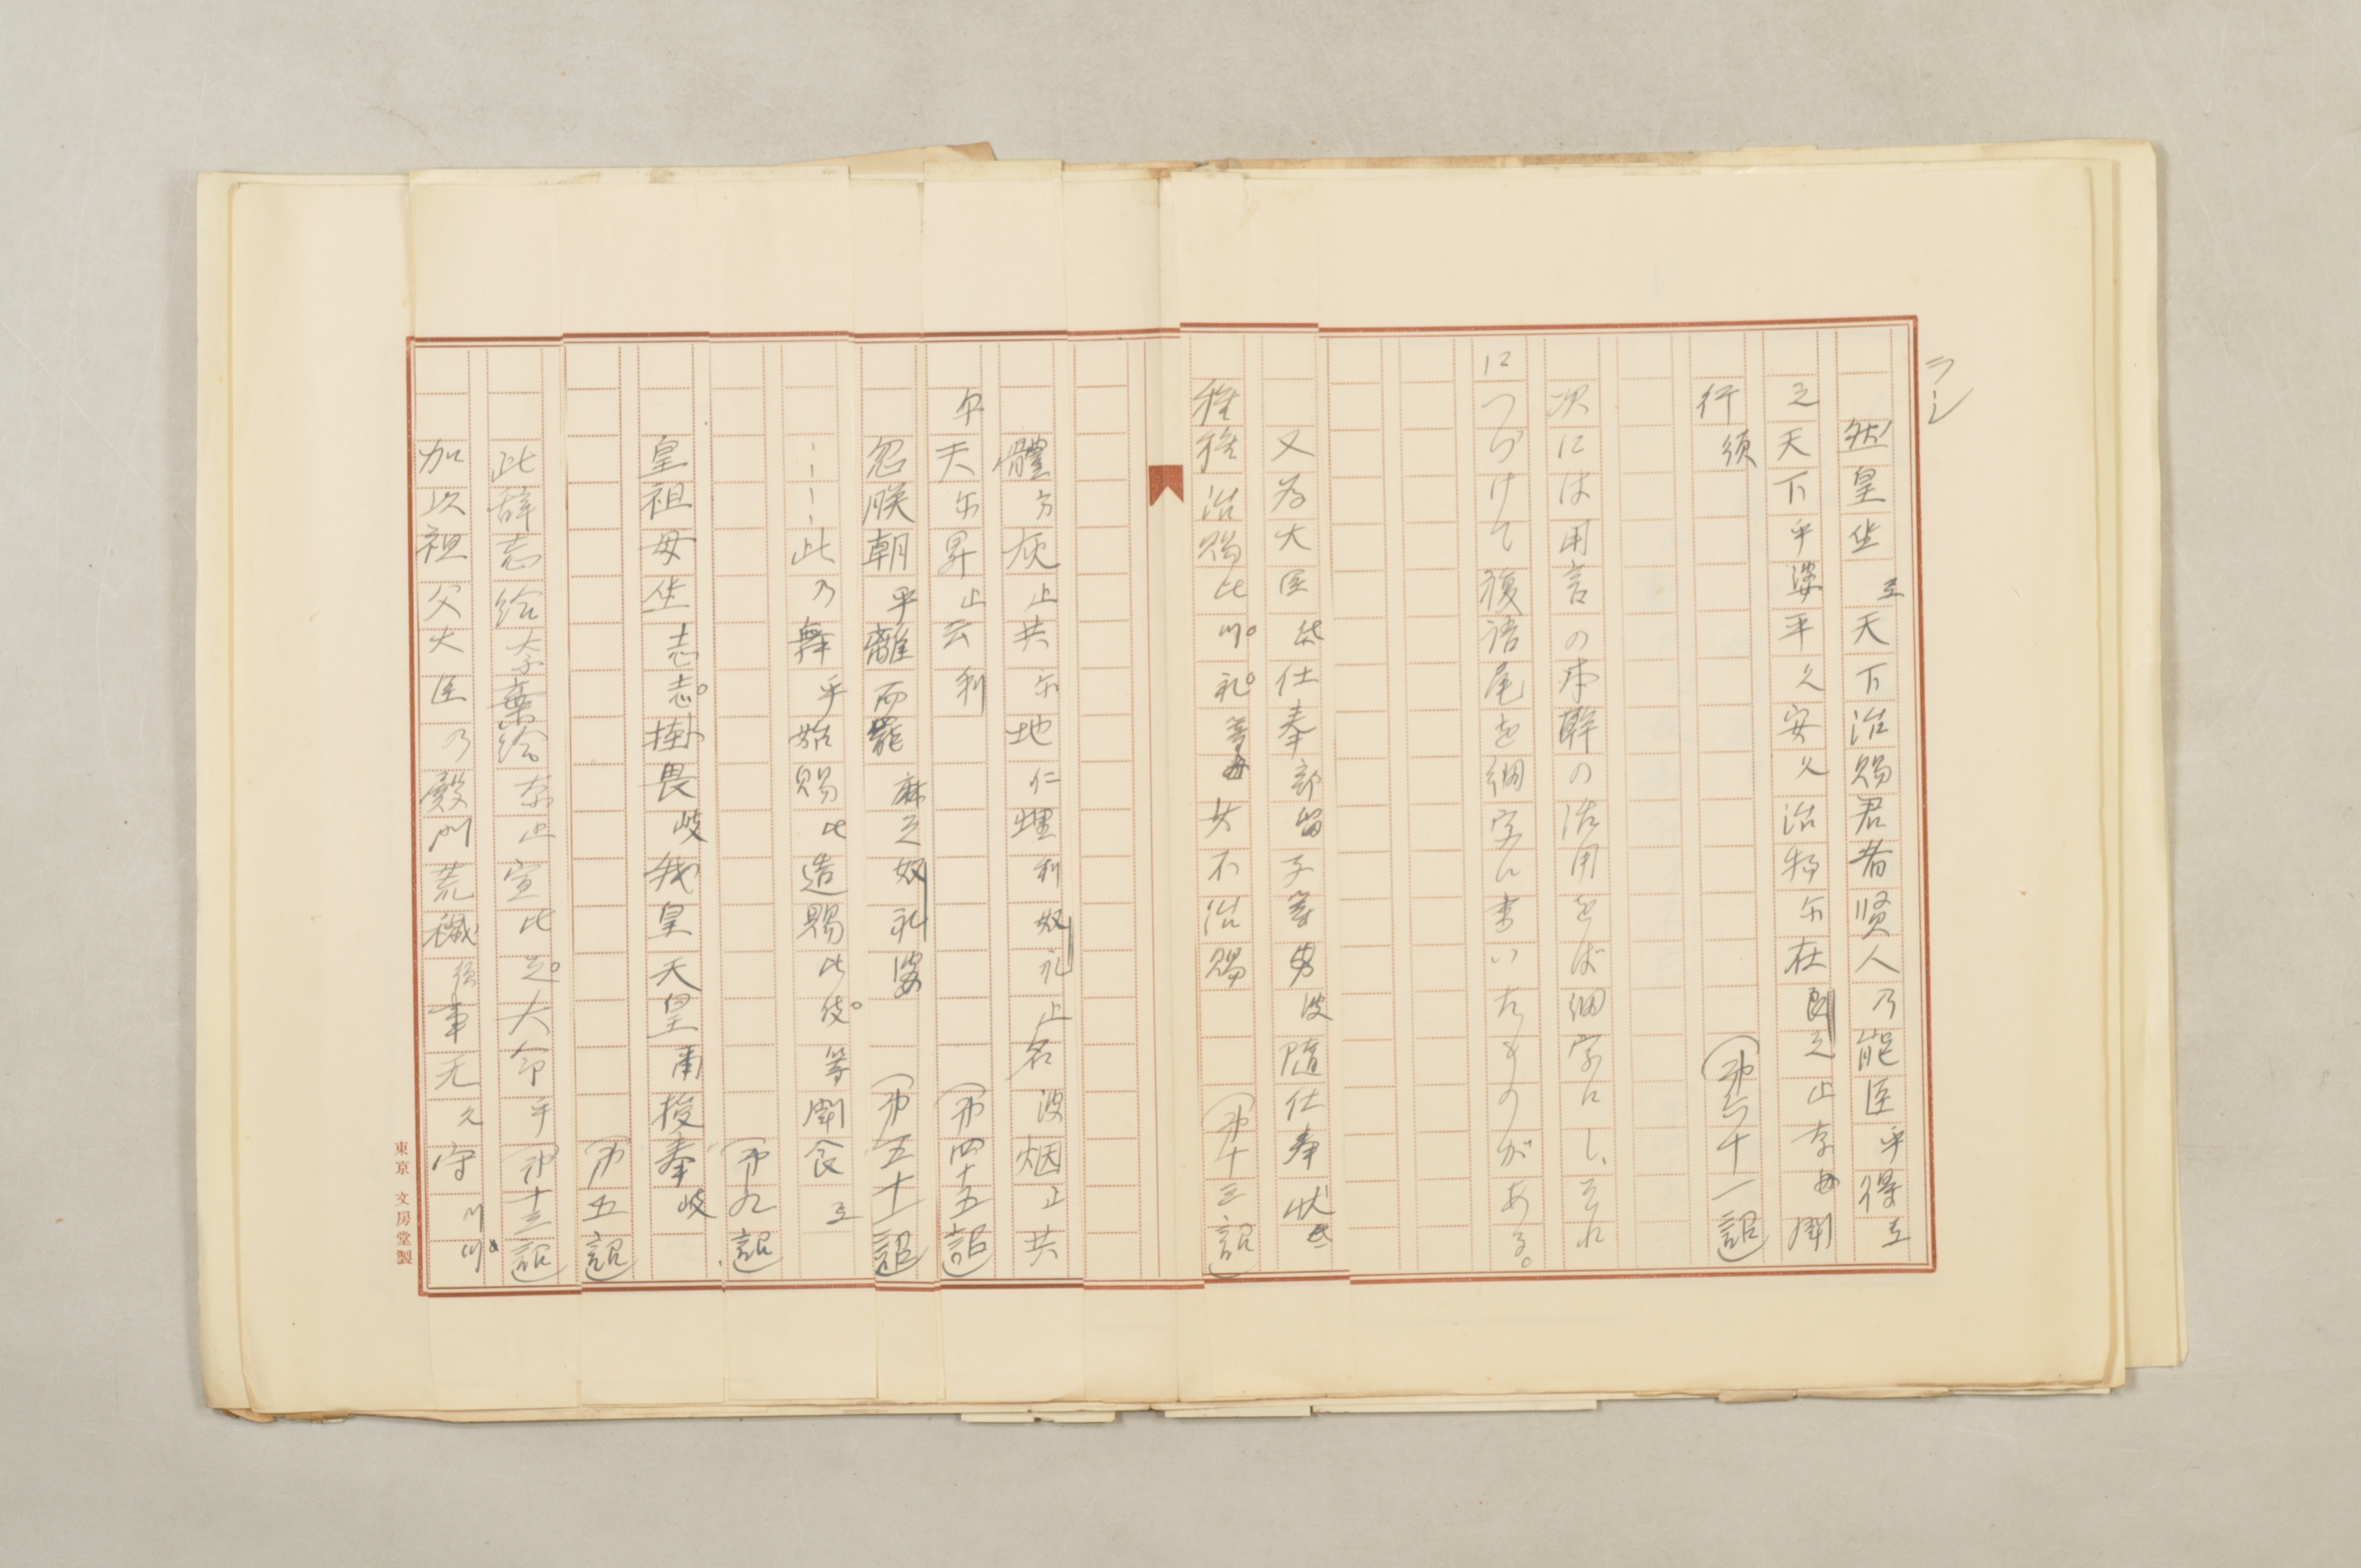 ラシ
然皇坐弖天下治賜君者賢人乃能臣乎得弖
之天下乎婆平久安久治物尓在良之止奈母聞
行須
(第六十一詔)
次には用言の本幹の活用をば細字にし、それ
につゞけて複語尾を細字に書いたものがある。
又為大臣弖仕奉部留子等男波随仕奉状弖
種種治賜比川礼等母女不治賜
(第十三詔)
體方灰止共尓地仁埋利奴礼止名波烟止共
尓天尓昇止云利
(第四十五詔)
忽朕朝乎離而罷麻之奴礼婆
(第五十一詔)
……此乃舞乎始賜比造賜比伎等聞食弖
(第九詔)
皇祖母坐志志掛畏岐我皇天皇尓授奉岐
(第五詔)
此辞忘給奈棄給奈止宣比之大命乎(第十三詔)
加以祖父大臣乃殿門荒穢須事无久守川川
東京 文房堂製